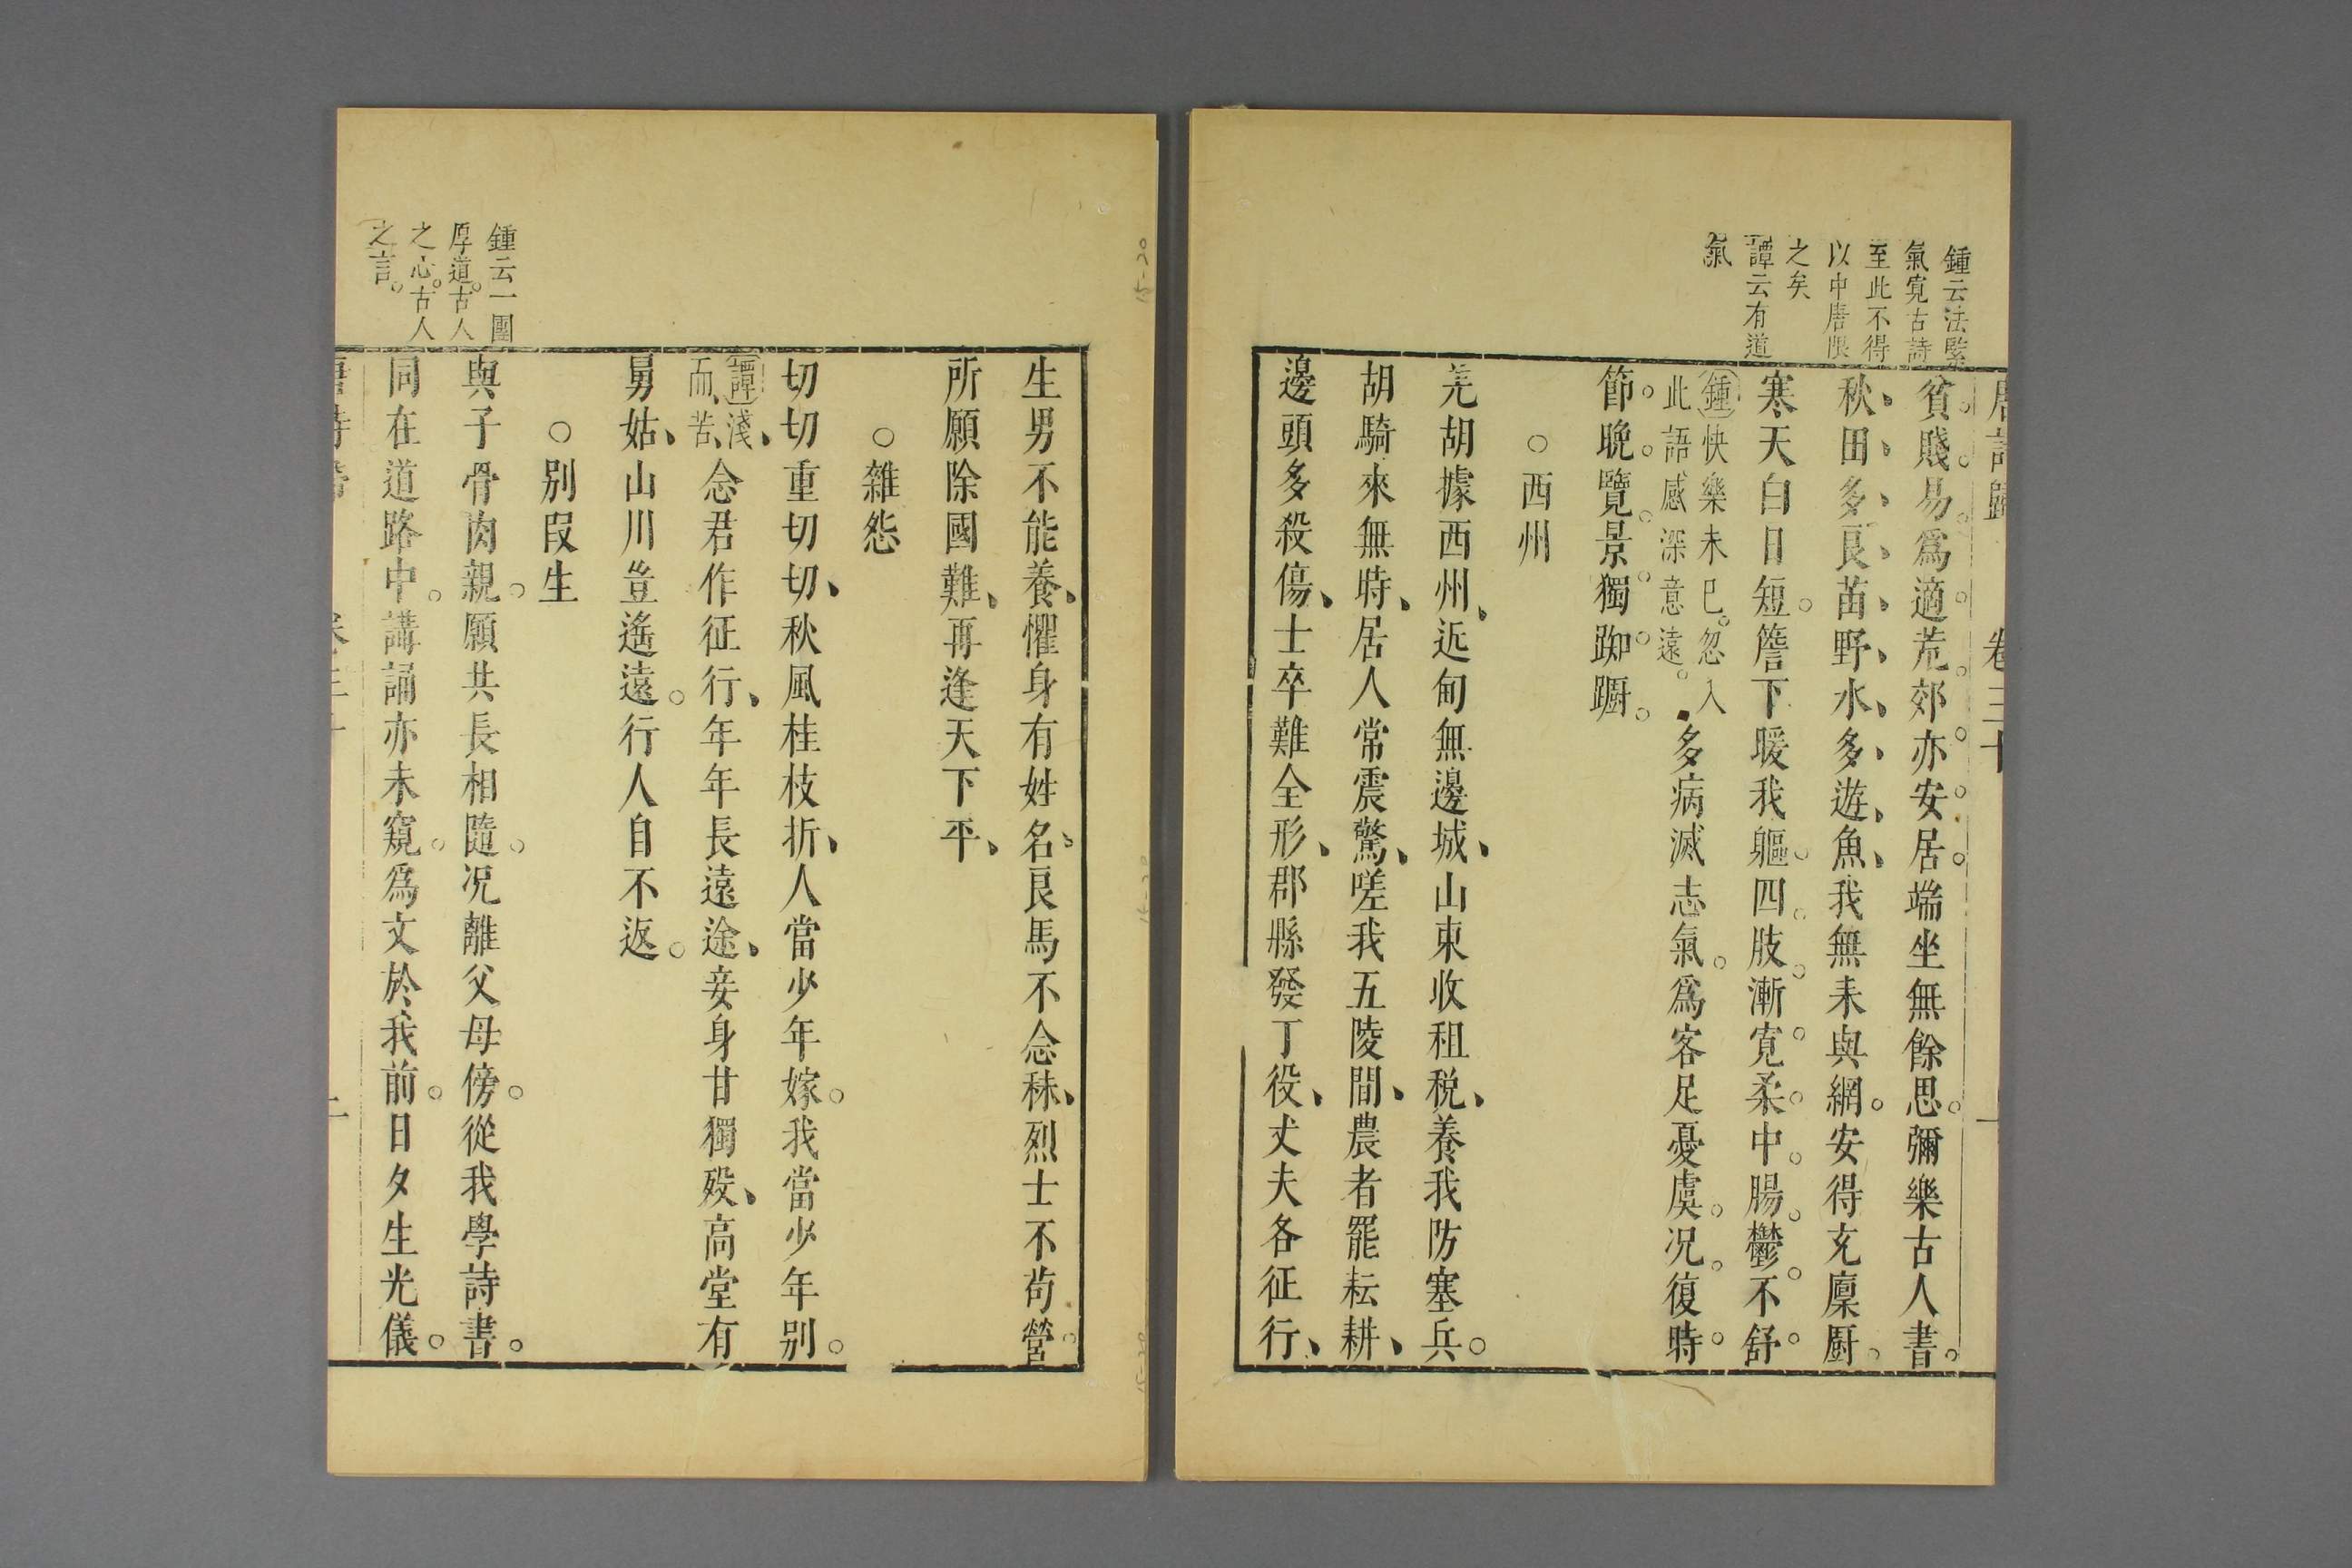 唐詩歸 卷三十 一
鍾云法緊
氣寛古詩
至此不得
以中唐限
之矣
譚云有道
氣
貧賤易爲適荒郊亦安居端坐無餘思彌樂古人書
秋田多良苗野水多遊魚我無耒與網安得充廩厨
寒天白日短簷下暖我軀四肢漸寛柔中腸鬱不舒
鍾快樂未已忽入
此語感深意遠
多病減志氣爲客足憂虞况復時
節晚覽景獨踟蹰
○西州
羌胡據西州近甸無邊城山東收租税養我防塞兵
胡騎來無時居人常震驚嗟我五陵間農者罷耘耕
邊頭多殺傷士卒難全形郡縣發丁役丈夫各征行
生男不能養懼身有姓名良馬不念秣烈士不苟營
所願除國難再逢天下平
○雜怨
切切重切切秋風桂枝折人當少年嫁我當少年别
譚淺
而苦
念君作征行年年長遠途妾身甘獨殁高堂有
舅姑山川豈遙遠行人自不返
○别叚生
鍾云一團
厚道古人
之心古人
之言
與子骨肉親願共長相隨况離父母傍從我學詩書
同在道路中講誦亦未窺爲文於我前日夕生光儀